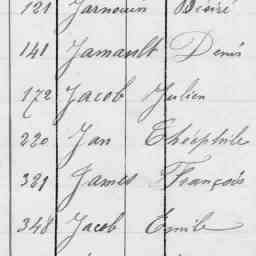 121 Jarnouin Désiré
141 Jamault Denis
172 Jacob Julien
220 Jan Théophile
321 James François
348 Jacob Emile